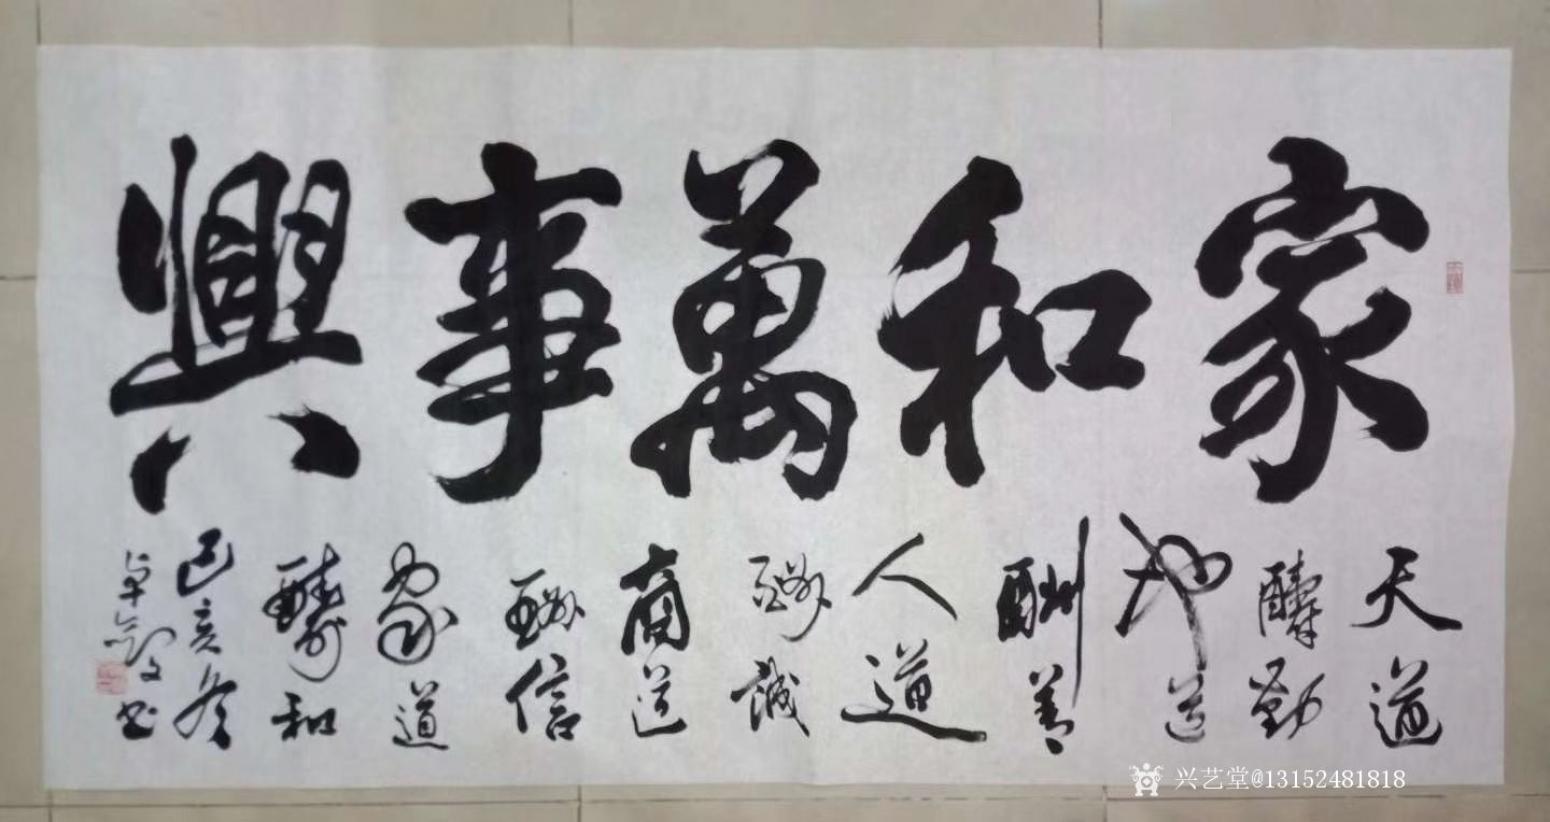 家和萬事興
天道
酬勤
地道
酬善
人道
酬誠
商道
酬信
家道
酬和
己亥冬
书
兴艺堂@13152481818